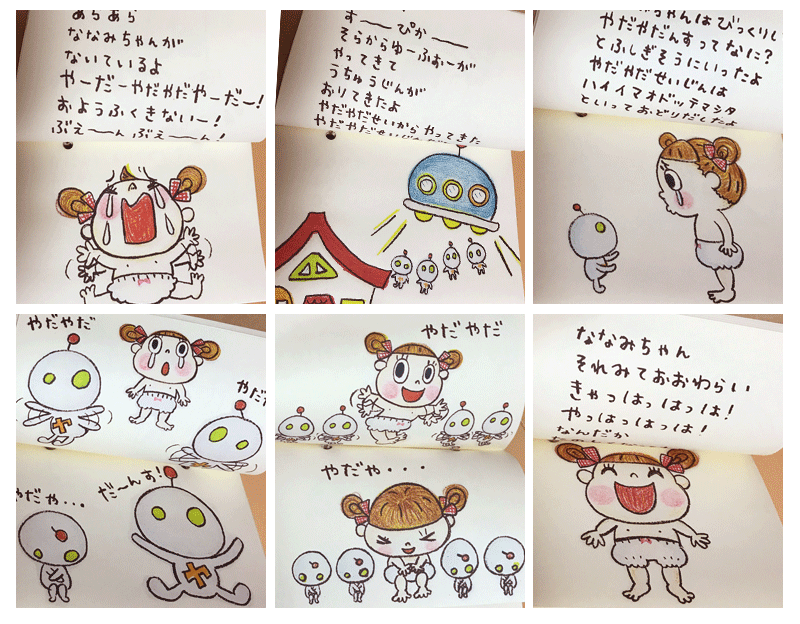 あらあら
ななみちゃんが
ないているよ
やーだーやだやだやーだー!
おようふくきないー!
ぶえ〜〜ん ぶえ〜〜ん!
す〜〜ぴか〜〜
そらからゆーふぉーが
やってきて
うちゅうじんが
おりてきたよ
やだやだせいからやってきた
ちゃんはびっくりし
やだやだんすってなに?
とふしぎそうにいったよ
やだやだせいじんは
ハイイマオドッテマシタ
といっておどりだしたよ
やだやだ
やだ
ヤ
やだや・・・
だ〜んす!
ヤ
やだやだ
やだや・・・
ななみちゃん
それみておおわらい
きゃっはっはっはっは!
やっはっはっは!
なんだか